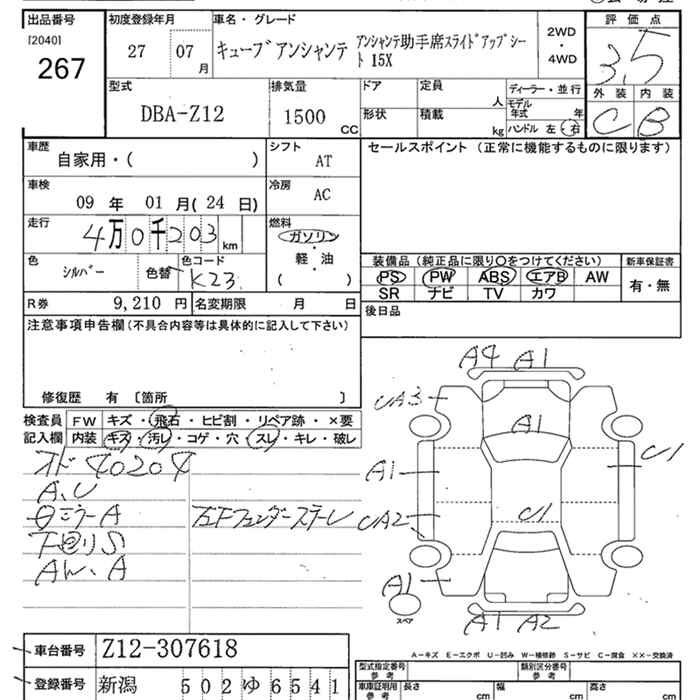 出品番号 初度登録年月 車名・グレード 評価点
[2040]
267
27 07 月
キューブアンシャンテ アンシャンテ助手席スライドアップシート 15X
2WD
・
4WD
3.5
型式 排気量 ドア 定員 人 ディーラー・並行 外装 内装
DBA-Z12 1500 CC
形状 積載 kg モデル年式 年
ハンドル 左・右
C B
車歴 シフト セールスポイント(正常に機能するものに限ります)
自家用・( ) AT
車検 冷房
09 年 01 月(24 日) AC
走行 燃料
4万0千203 km ガソリン
軽・油
( )
色 色コード
シルバー 色替 K23
装備品(純正品に限り○をつけてください) 新車保証書
PS PW ABS エアB AW 有・無
SR ナビ TV カワ
R券 9,210 円 名変期限 月 日
後日品
注意事項申告欄(不具合内容等は具体的に記入して下さい)
修復歴 有 〔箇所 〕
検査員記入欄
FW キズ・飛石・ヒビ割・リペア跡・×要
内装 キズ・汚レ・コゲ・穴・スレ・キレ・破レ
オド 40204
A、U
下回りS
AW、A
A4 A1
CA3
A1
A1
C1
CA2
C1
A1
スペア
A1 A2
A-キズ E-エクボ U-凹み W-補修跡 S-サビ C-腐食 ××-交換済
車台番号 Z12-307618
登録番号 新潟 502 ゆ 6541
型式指定番号 参考 類別区分番号 参考
車庫証明用 参考 長さ cm 幅 cm 高さ cm